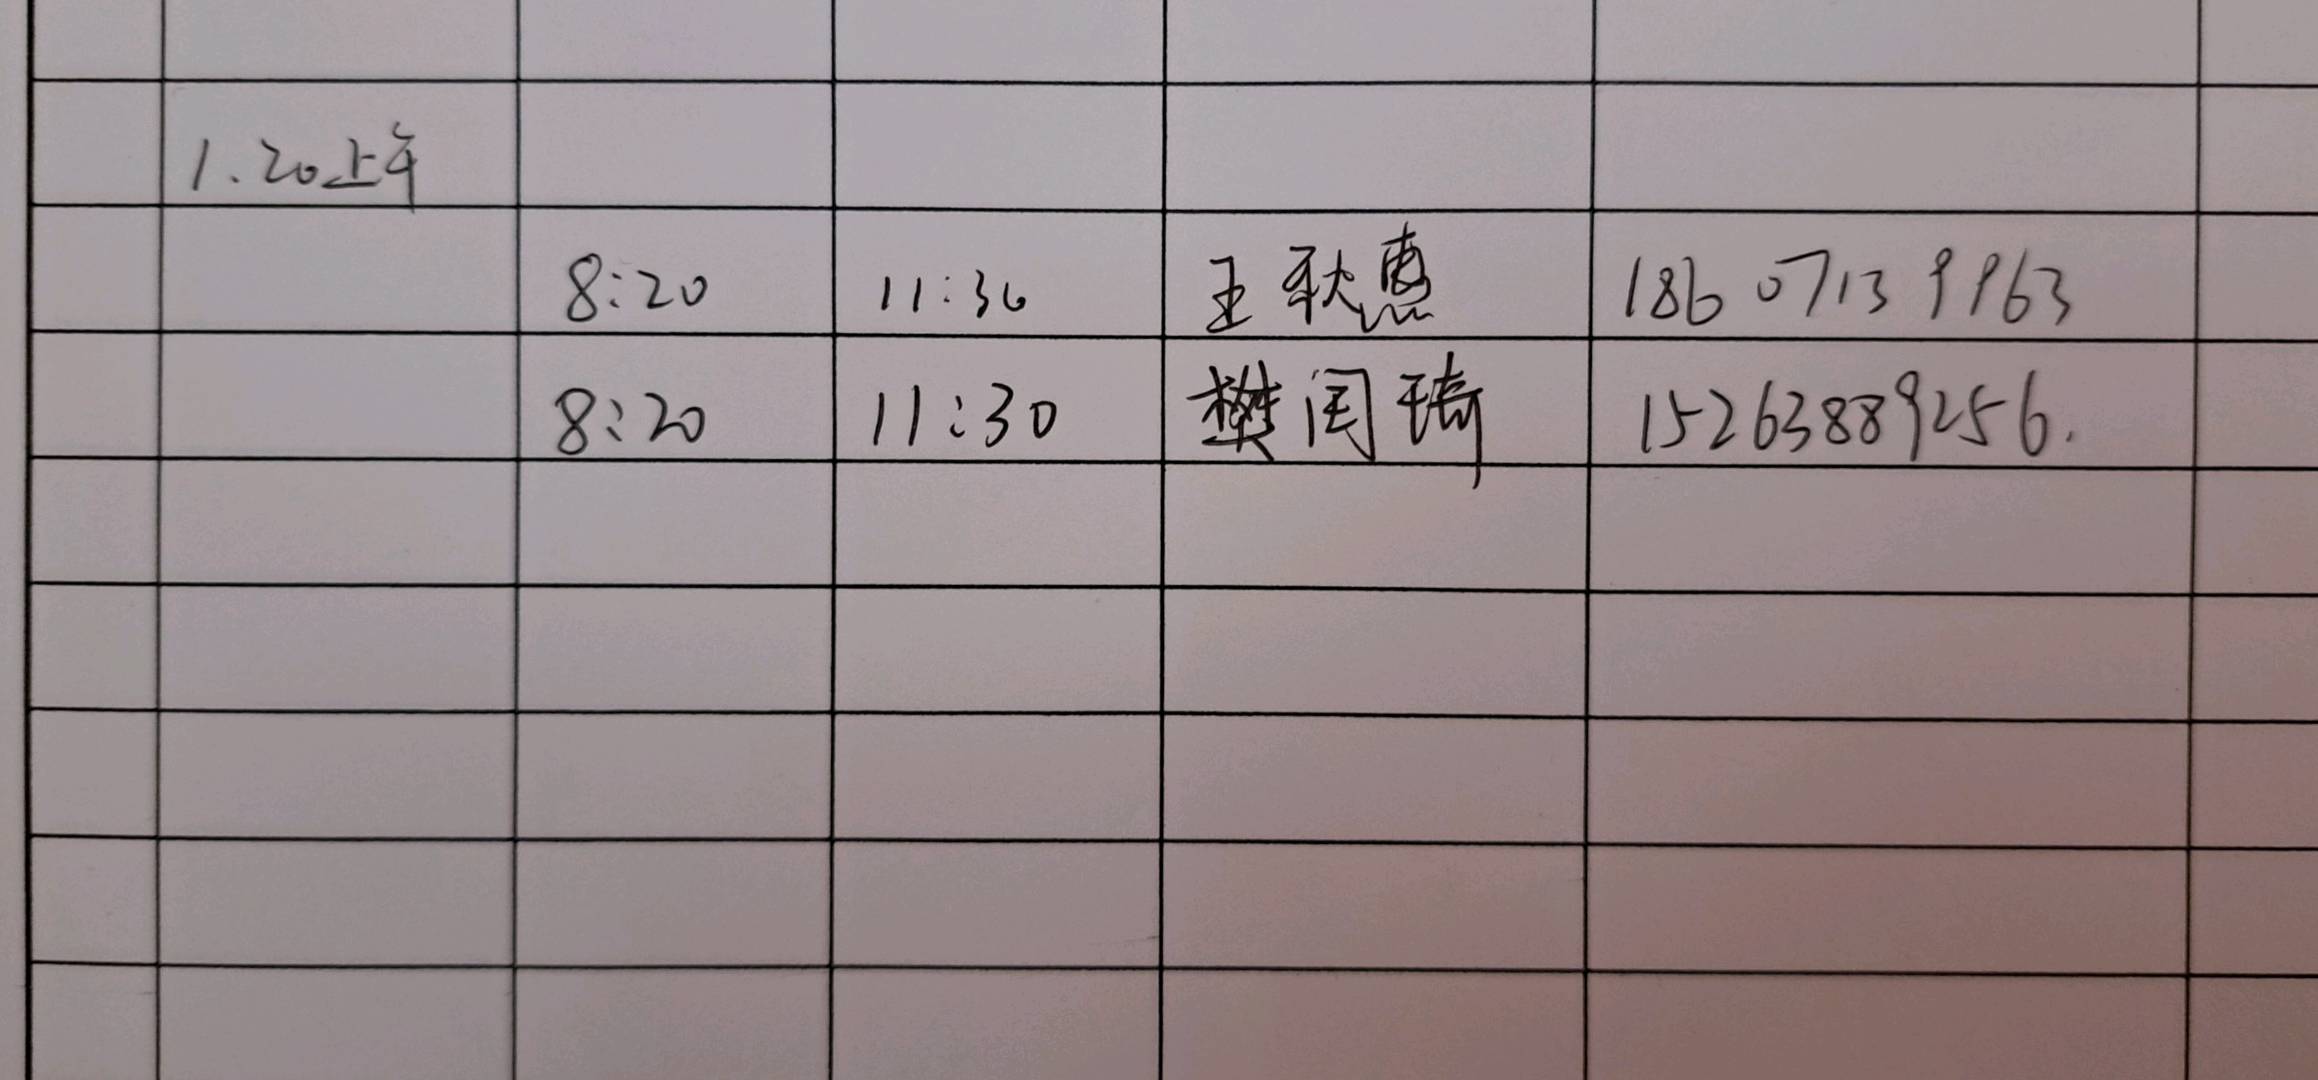 1.20上午
8:20 11:30 王秋惠 18607139963
8:20 11:30 樊闰琦 15263889256.